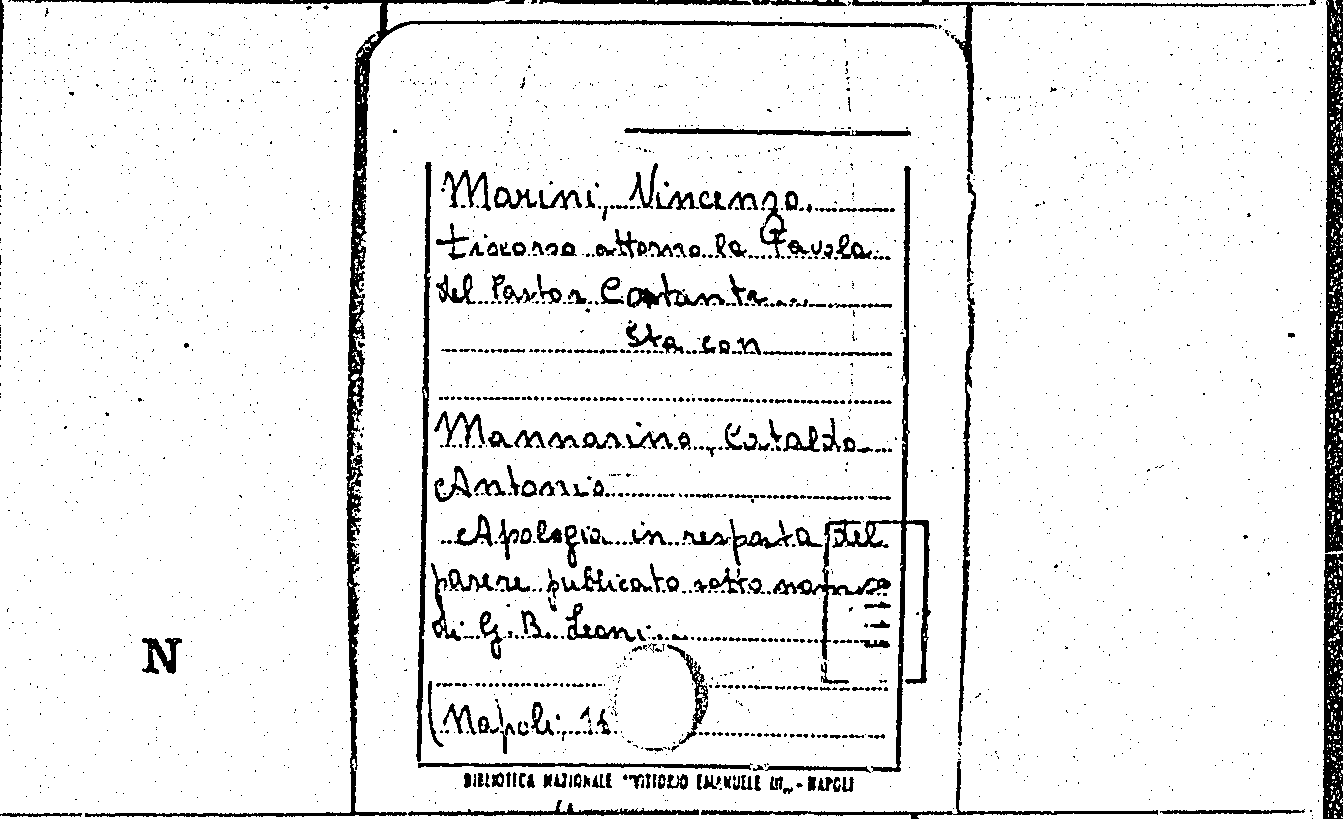 Marini, Vincenzo.
Discorso attorno la Favola
del Pastor Costante...
Sta con
Mannarino, Cataldo
Antonio
Apologia in resposta del
parere publicato sotto nome
di G. B. Leoni...
N
(Napoli, 1
BIBLIOTECA NAZIONALE "VITTORIO EMANUELE III„ - NAPOLI